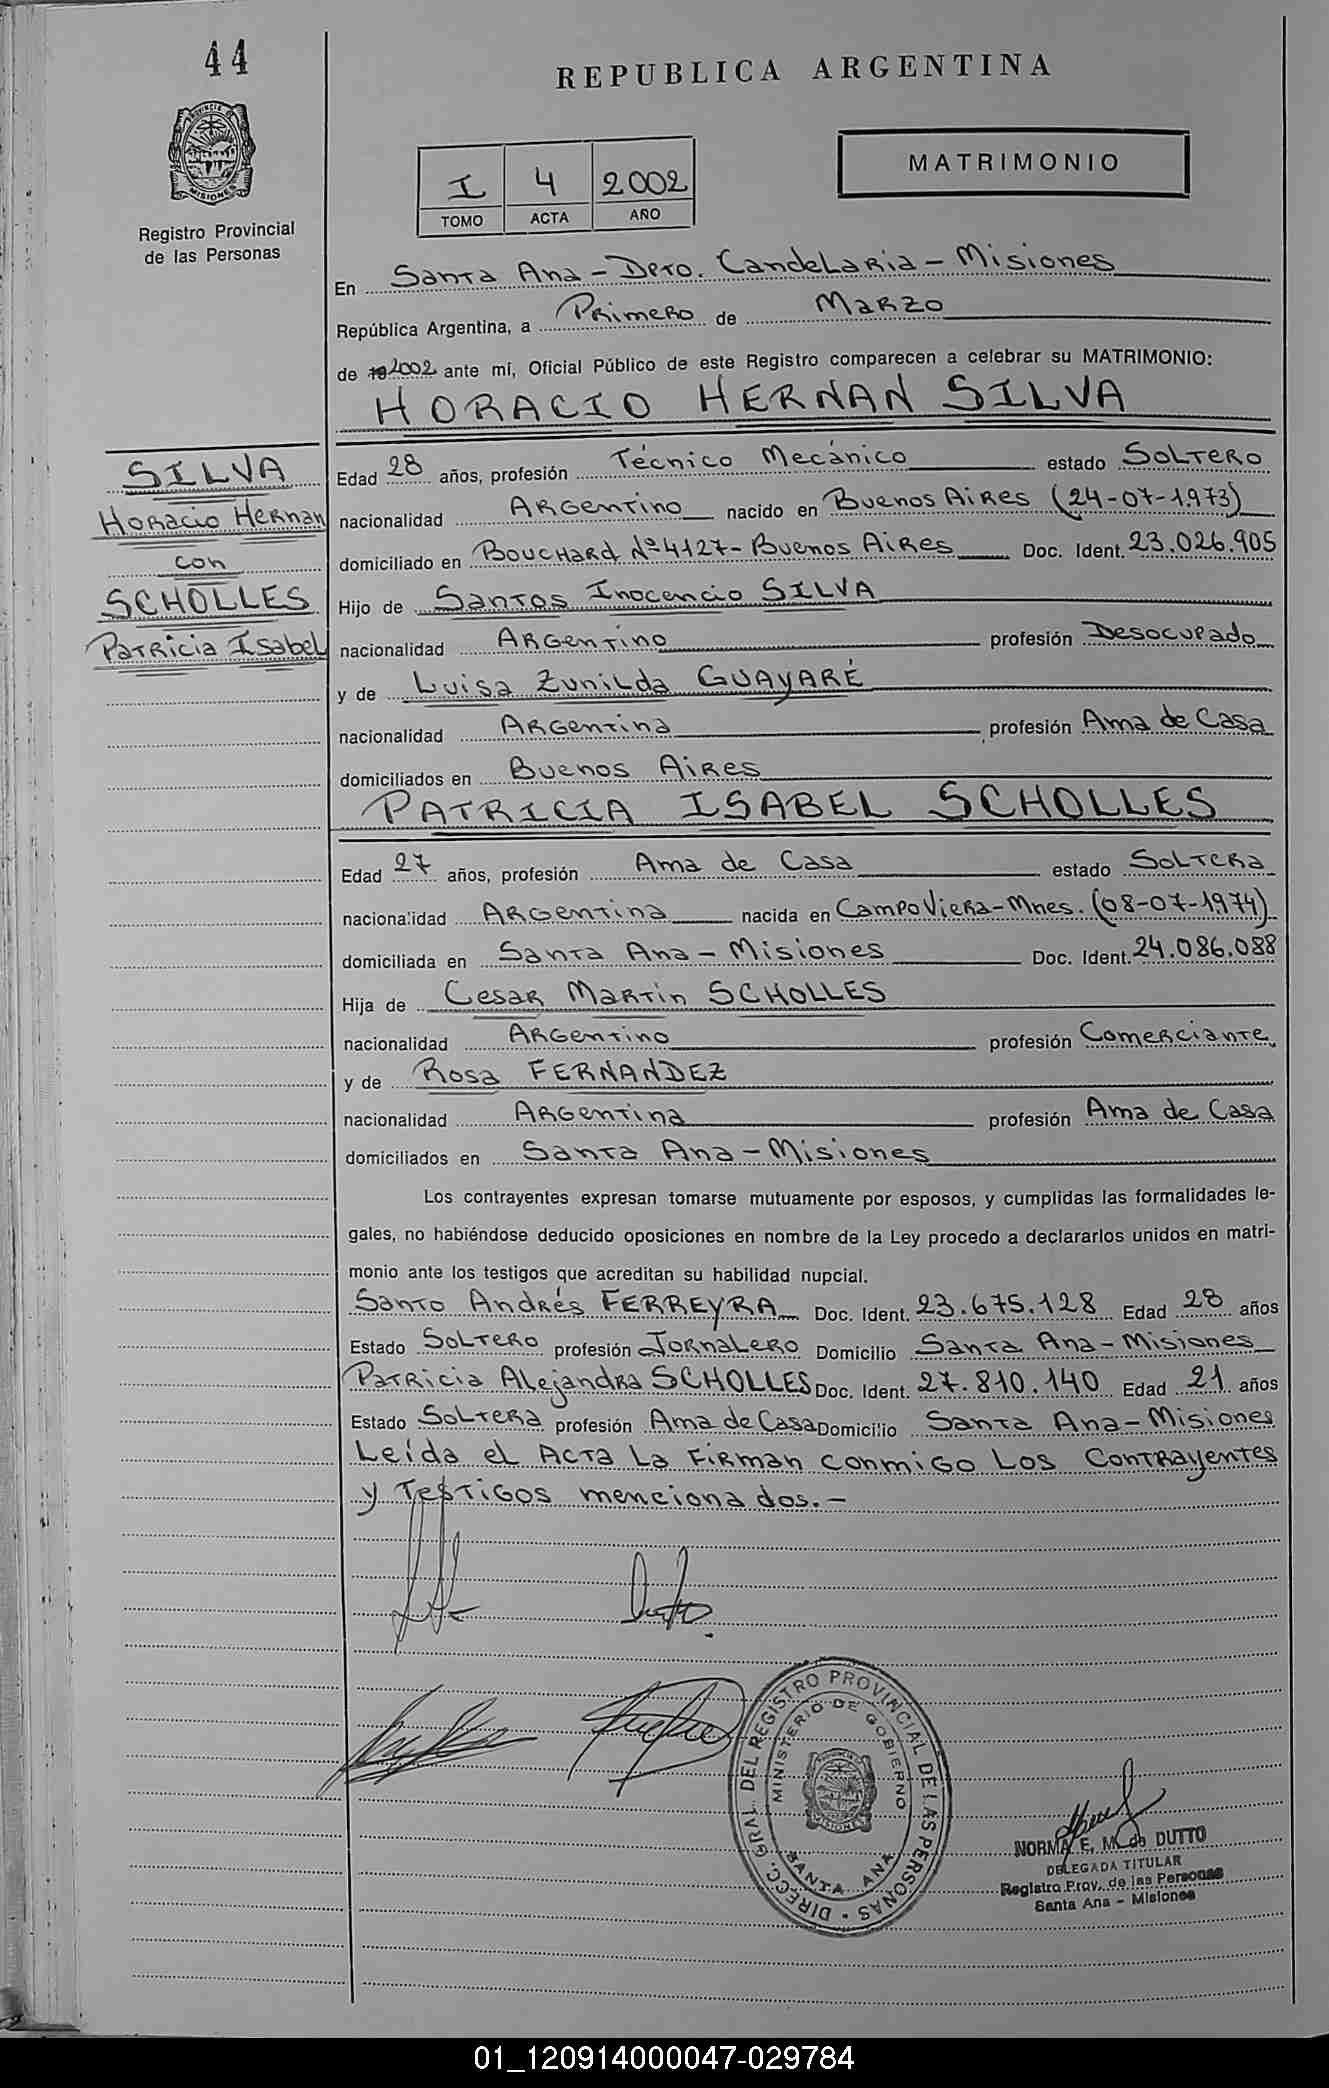 44
REPUBLICA ARGENTINA
PROVINCIA DE MISIONES
Registro Provincial
de las Personas
I 4 2002
TOMO ACTA AÑO
MATRIMONIO
En Santa Ana - Dpto. Candelaria - Misiones
República Argentina, a Primero de Marzo
de 19 2002 ante mí, Oficial Público de este Registro comparecen a celebrar su MATRIMONIO:
HORACIO HERNAN SILVA
SILVA
Horacio Hernan
con
SCHOLLES
Patricia Isabel
Edad 28 años, profesión Técnico Mecánico estado Soltero
nacionalidad Argentino nacido en Buenos Aires (24-07-1973)
domiciliado en Bouchard Nº 4127 - Buenos Aires Doc. Ident. 23.026.905
Hijo de Santos Inocencio SILVA
nacionalidad Argentino profesión Desocupado
y de Luisa Zunilda GUAYARÉ
nacionalidad Argentina profesión Ama de Casa
domiciliados en Buenos Aires
PATRICIA ISABEL SCHOLLES
Edad 27 años, profesión Ama de Casa estado Soltera
nacionalidad Argentina nacida en Campo Viera - Mnes. (08-07-1974)
domiciliada en Santa Ana - Misiones Doc. Ident. 24.086.088
Hija de Cesar Martin SCHOLLES
nacionalidad Argentino profesión Comerciante
y de Rosa FERNANDEZ
nacionalidad Argentina profesión Ama de Casa
domiciliados en Santa Ana - Misiones
Los contrayentes expresan tomarse mutuamente por esposos, y cumplidas las formalidades le-
gales, no habiéndose deducido oposiciones en nombre de la Ley procedo a declararlos unidos en matri-
monio ante los testigos que acreditan su habilidad nupcial.
Santo Andrés FERREYRA Doc. Ident. 23.675.128 Edad 28 años
Estado Soltero profesión Jornalero Domicilio Santa Ana - Misiones
Patricia Alejandra SCHOLLES Doc. Ident. 27.810.140 Edad 21 años
Estado Soltera profesión Ama de Casa Domicilio Santa Ana - Misiones
Leída el Acta la Firman conmigo los Contrayentes
y Testigos mencionados.-
DIRECC. GRAL. DEL REGISTRO PROVINCIAL DE LAS PERSONAS
MINISTERIO DE GOBIERNO
SANTA ANA
NORMA E. M. de DUTTO
DELEGADA TITULAR
Registro Prov. de las Personas
Santa Ana - Misiones
01_120914000047-029784